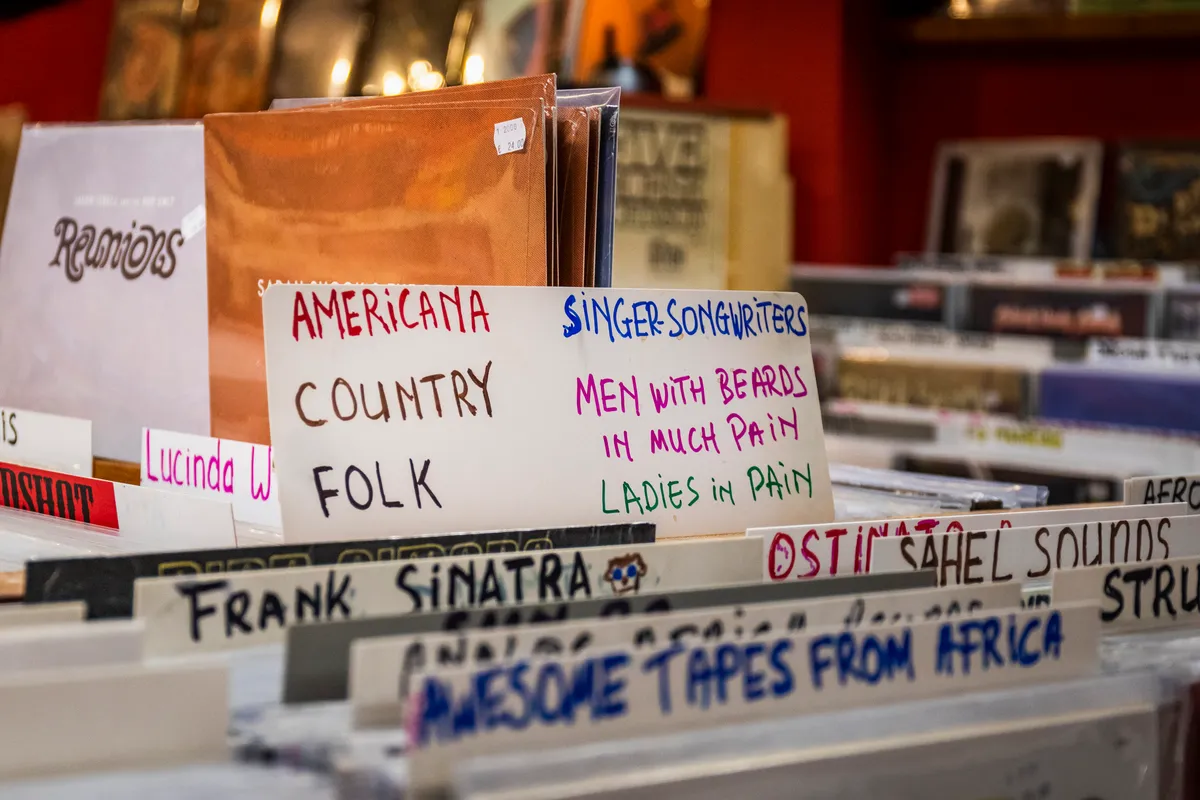 Reunions
24.00
AMERICANA
COUNTRY
FOLK
SINGER-SONGWRITERS
MEN WITH BEARDS
IN MUCH PAIN
LADIES IN PAIN
IS
Lucinda W
DSHOT
FRANK SINATRA
OSTINATO
SAHEL SOUNDS
AFRO
STRU
ANALOG AFRICA
AWESOME TAPES FROM AFRICA